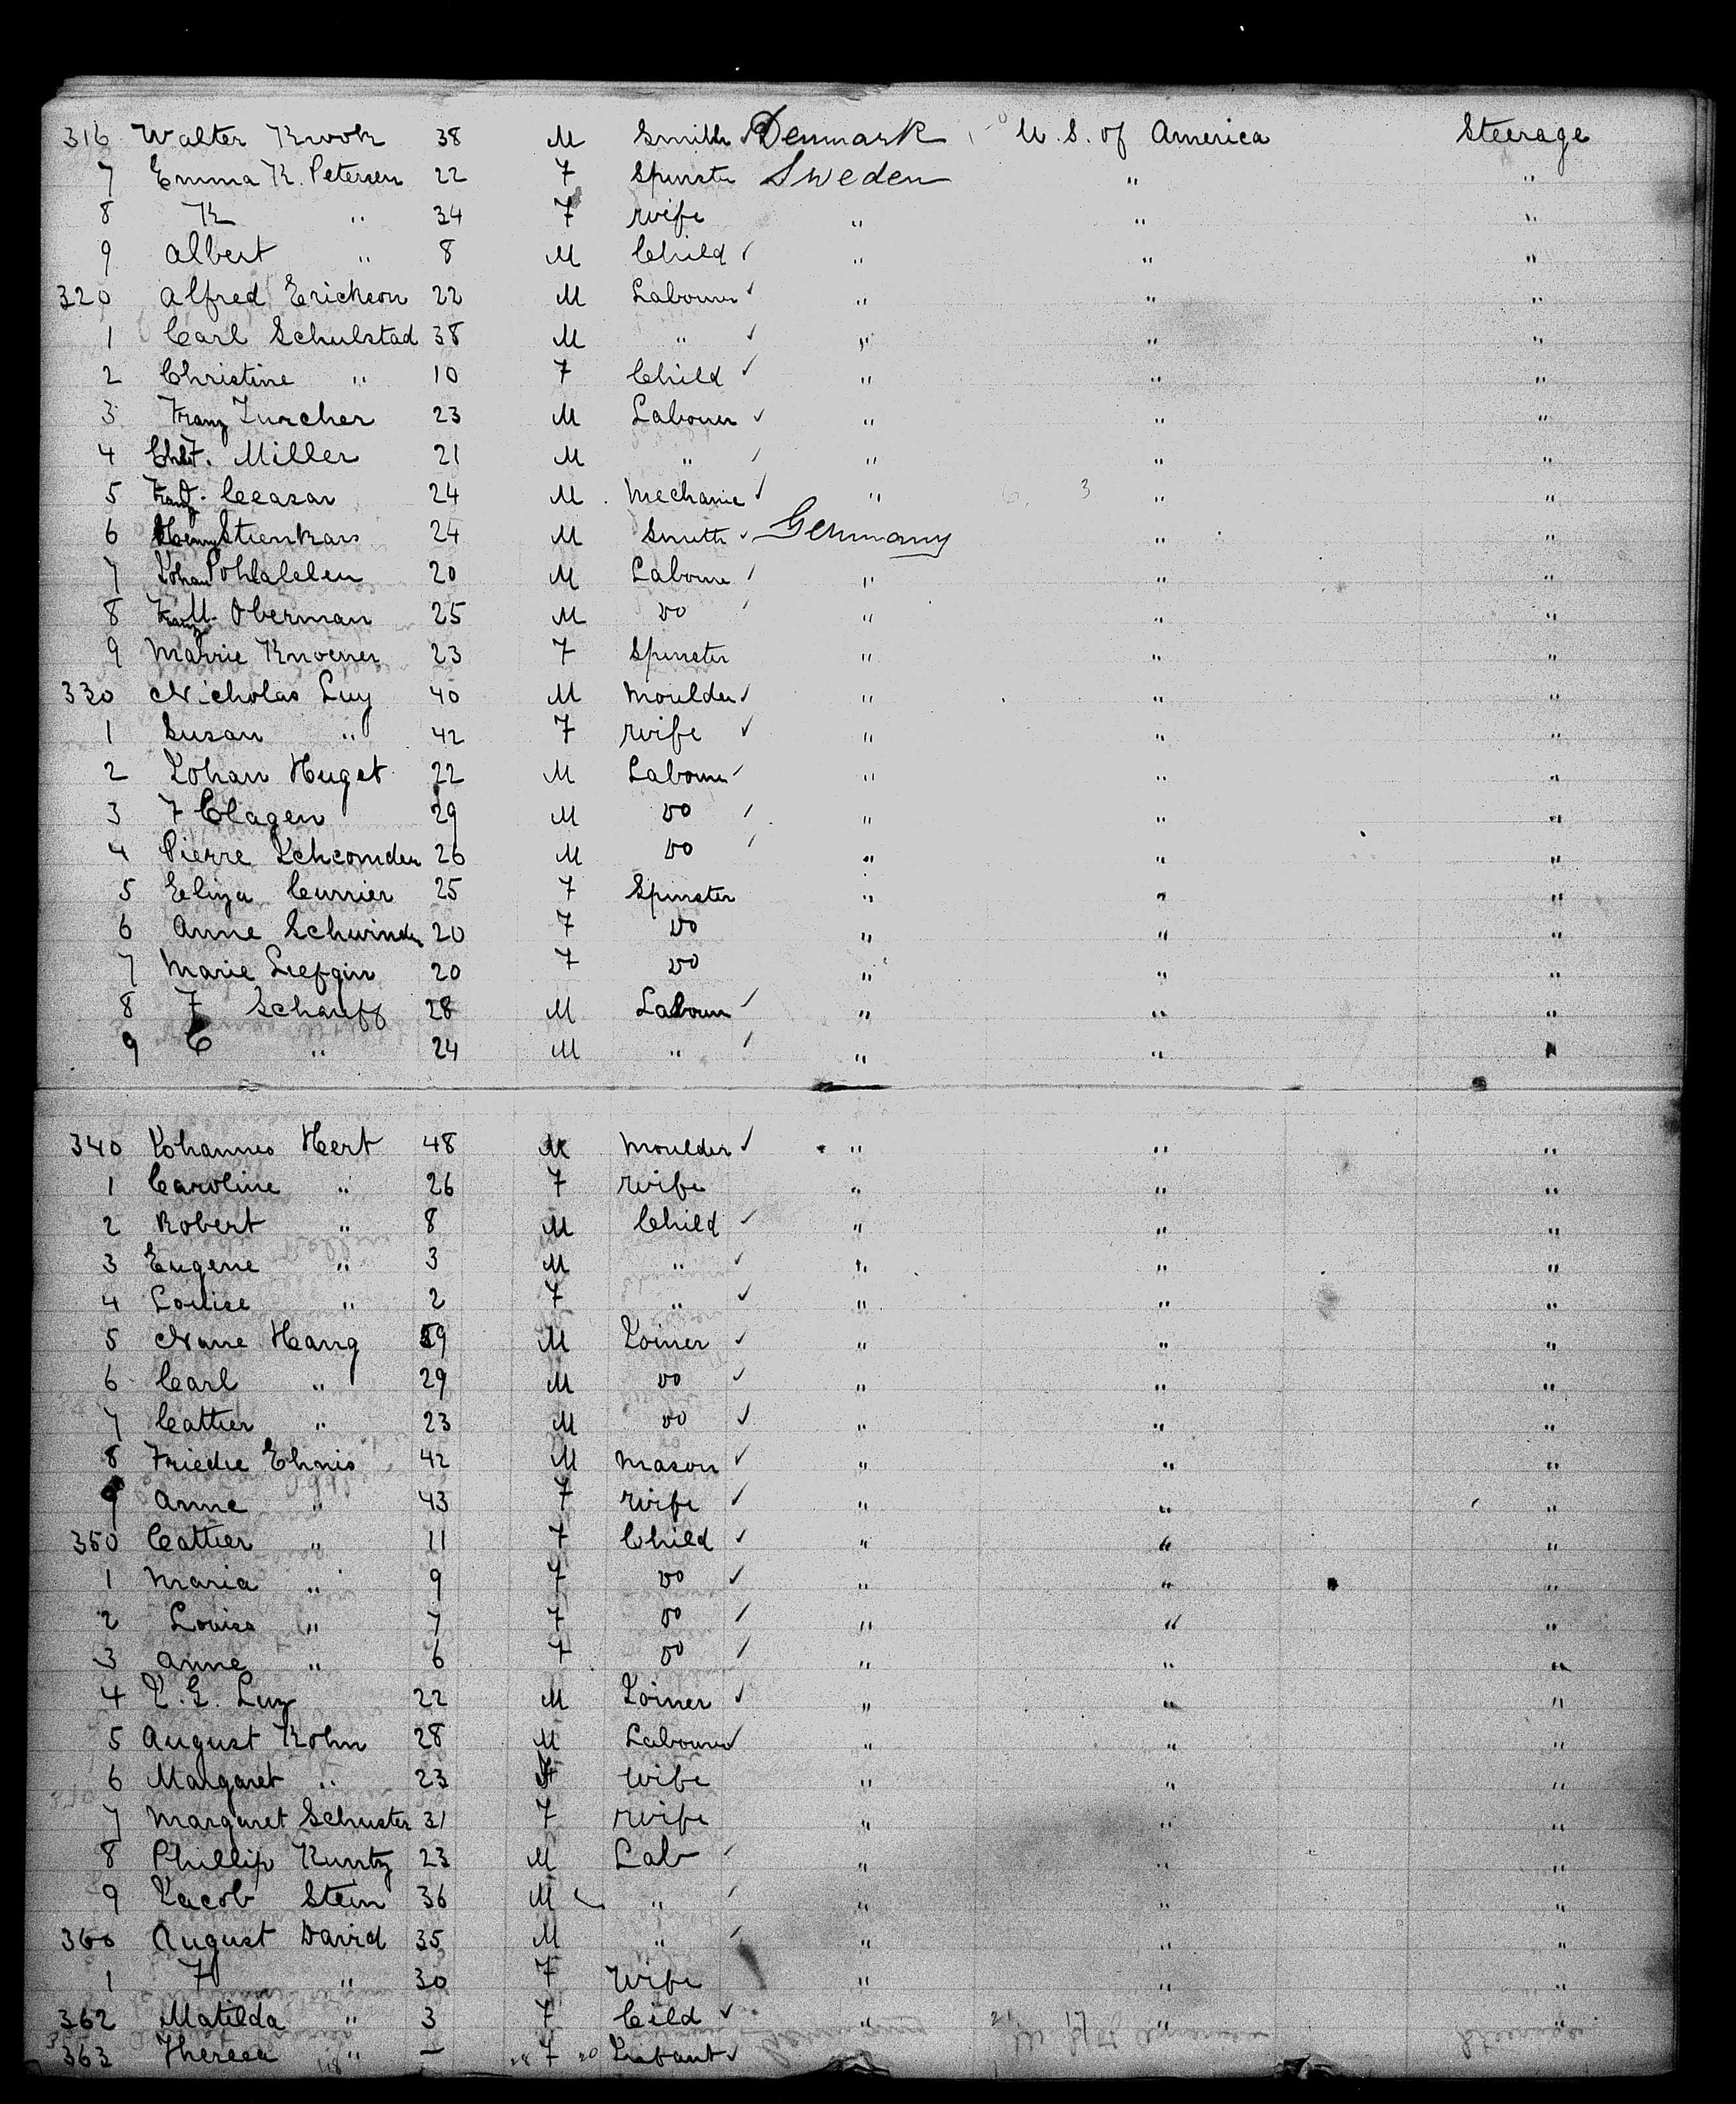 316 Walter Krook 38 M Smith Denmark U. S. of America Steerage
7 Emma K. Petersen 22 F Spinster Sweden " "
8 K " 34 F wife " " "
9 Albert " 8 M Child " " "
320 Alfred Erickson 22 M Labourer " " "
1 Carl Schulstad 38 M " " " "
2 Christine " 10 F Child " " "
3 Franz Zurcher 23 M Labourer " " "
4 Miller 21 M " " " "
5 Ceasar 24 M Mechanic " " "
6 Henry 24 M Smith Germany " "
7 Johan 20 M Laboure " " "
8 Franz Oberman 25 M Do " " "
9 Marrie Knoener 23 F Spinster " " "
330 Nicholas Luy 40 M Moulder " " "
1 Susan " 42 F Wife " " "
2 Johan Huget 22 M Labourer " " "
3 F Clagen 29 M Do " " "
4 Pierre 26 M Do " " "
5 Eliza Currier 25 F Spinster " " "
6 Anne Schwinder 20 F Do " " "
7 Marie 20 F Do " " "
8 F Schauff 28 M Labour " " "
9 C " 24 M " " " "
340 Johannes Hert 48 M Moulder " " "
1 Caroline " 26 F Wife " " "
2 Robert " 8 M Child " " "
3 Eugene " 3 M " " " "
4 Louise " 2 F " " " "
5 Hang 59 M Joiner " " "
6 Carl " 29 M Do " " "
7 Cattier " 23 M Do " " "
8 Ehnis 42 M Mason " " "
9 Anne " 43 F Wife " " "
350 Cattier " 11 F Child " " "
1 Maria " 9 F Do " " "
2 Louisa " 7 F Do " " "
3 Anne " 6 F Do " " "
4 J. 22 M Joiner " " "
5 August Kohn 28 M Labourer " " "
6 Margaret " 23 F Wife " " "
7 Margaret Schuster 31 F Wife " " "
8 Phillip Kuntz 23 M Lab " " "
9 Jacob Stein 36 M " " " "
360 August David 35 M " " " "
1 F " 30 F Wife " " "
362 Matilda " 3 F Cild " " "
363 Theresa " — F Infant